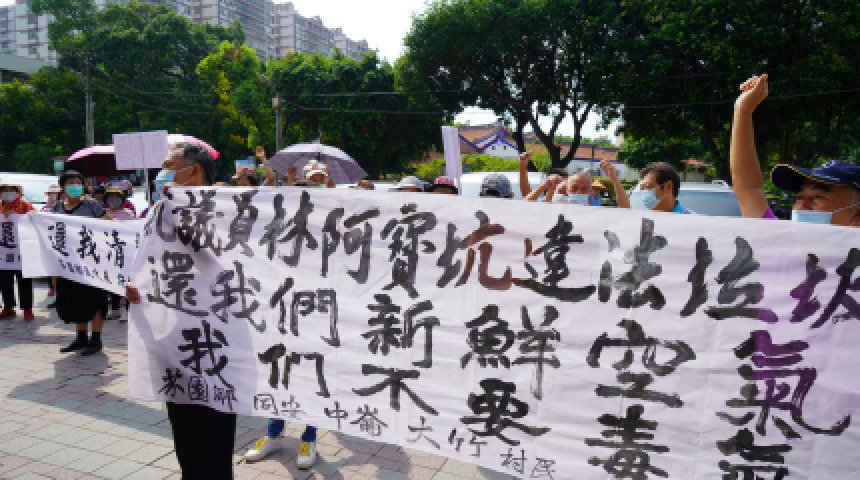 還
還我清
議員林阿寶坑違法垃圾
還我們新鮮空氣
我们不要毒氣
芬園鄉 同安 中崙 大竹 村民